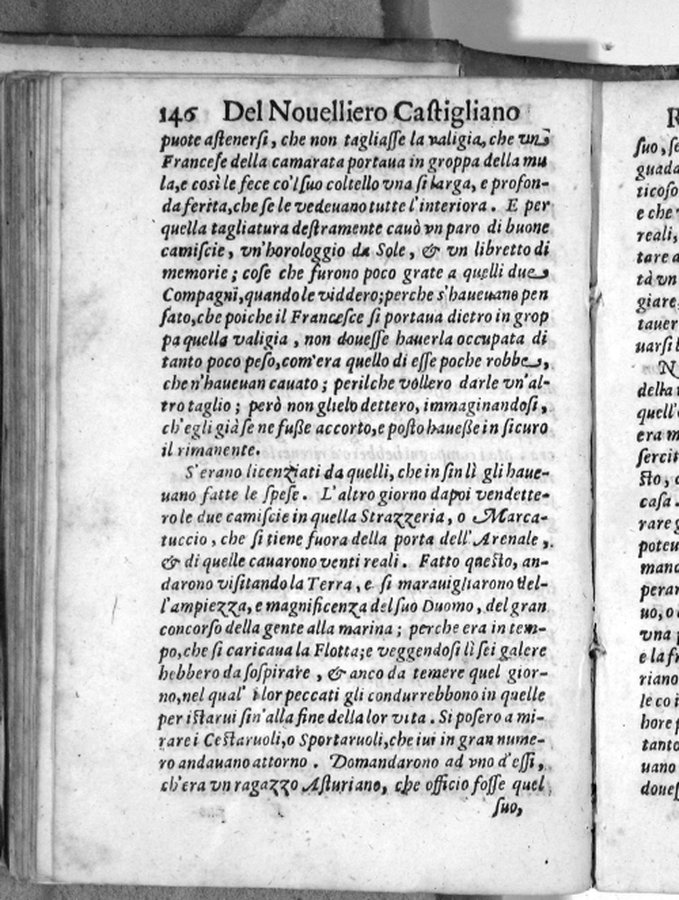 146 Del Nouelliero Caſtigliano
puote aſtenerſi, che non tagliaſſe la valigia, che vn
Franceſe della camarata portaua in groppa della mu
la, e così le fece co'lſuo coltello vna ſi larga, e profon-
da ferita, che ſe le vedeuano tutte l'interiora. E per
quella tagliatura deſtramente cauò vn paro di buone
camiſcie, vn'horologgio da Sole, & vn libretto di
memorie; coſe che furono poco grate a quelli due
Compagni, quando le viddero; perche s'haueuano pen
ſato, che poiche il Franceſce ſi portaua dietro in grop
pa quella valigia, non doueſſe hauerla occupata di
tanto poco peſo, com'era quello di eſſe poche robbe,
che n'haueuan cauato; perilche vollero darle vn'al-
tro taglio; però non glielo dettero, immaginandoſi,
ch'egli già ſe ne fuße accorto, e poſto haueße in ſicuro
il rimanente.
S'erano licenziati da quelli, che in ſin lì gli haue-
uano fatte le ſpeſe. L'altro giorno dapoi vendette-
ro le due camiſcie in quella Strazzeria, o Marca-
tuccio, che ſi tiene fuora della porta dell'Arenale,
& di quelle cauarono venti reali. Fatto queſto, an-
darono viſitando la Terra, e ſi marauigliarono del-
l'ampiezza, e magnificenza del ſuo Duomo, del gran
concorſo della gente alla marina; perche era in tem-
po, che ſi caricaua la Flotta; e veggendoſi lì ſei galere
hebbero da ſoſpirare, & anco da temere quel gior-
no, nel qual' i lor peccati gli condurrebbono in quelle
per iſtarui ſin'alla fine della lor vita. Si poſero a mi-
rare i Ceſtaruoli, o Sportaruoli, che iui in gran nume-
ro andauano attorno. Domandarono ad vno d'eſſi,
ch'era vn ragazzo Aſturiano, che officio foſſe quel
ſuo,
R
ſuo, ſe
guada
ticoſo
e che
reali,
tare a
tà vn
giare,
tauer
uarſi l
N
della
quell'
era m
ſercit
ſto, c
caſa.
rare g
poteu
mand
peran
uo, o
vna p
e la fr
riano
le co i
hore p
tanto
uano
doueſ